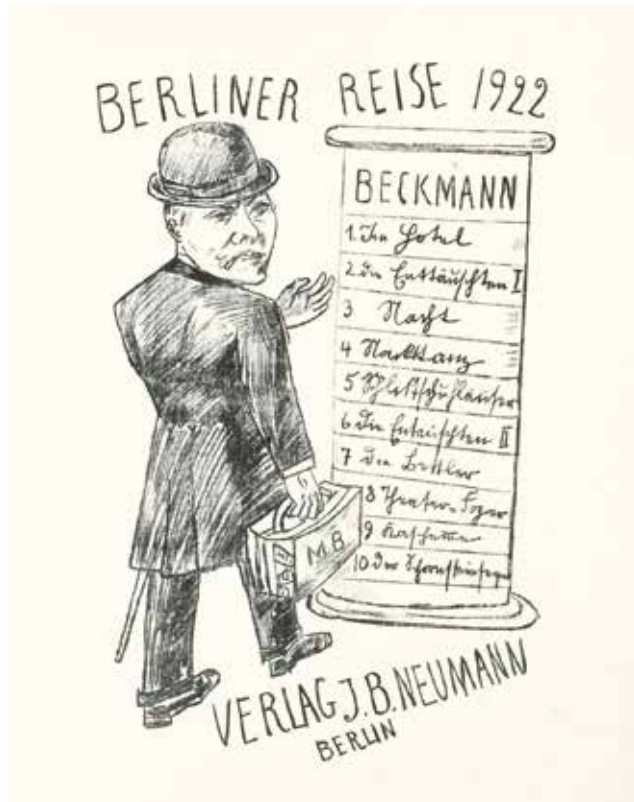 BERLINER REISE 1922
BECKMANN
1. Im Hotel
2 Die Enttäuschten I
3 Nacht
4 Nackttanz
5 Schlittschuhläufer
6 Die Entäuschten II
7 Die Bettler
8 Theater-Foyer
9 Kaschemme
10 Der Schornsteinfeger
M.B
VERLAG J.B. NEUMANN
BERLIN